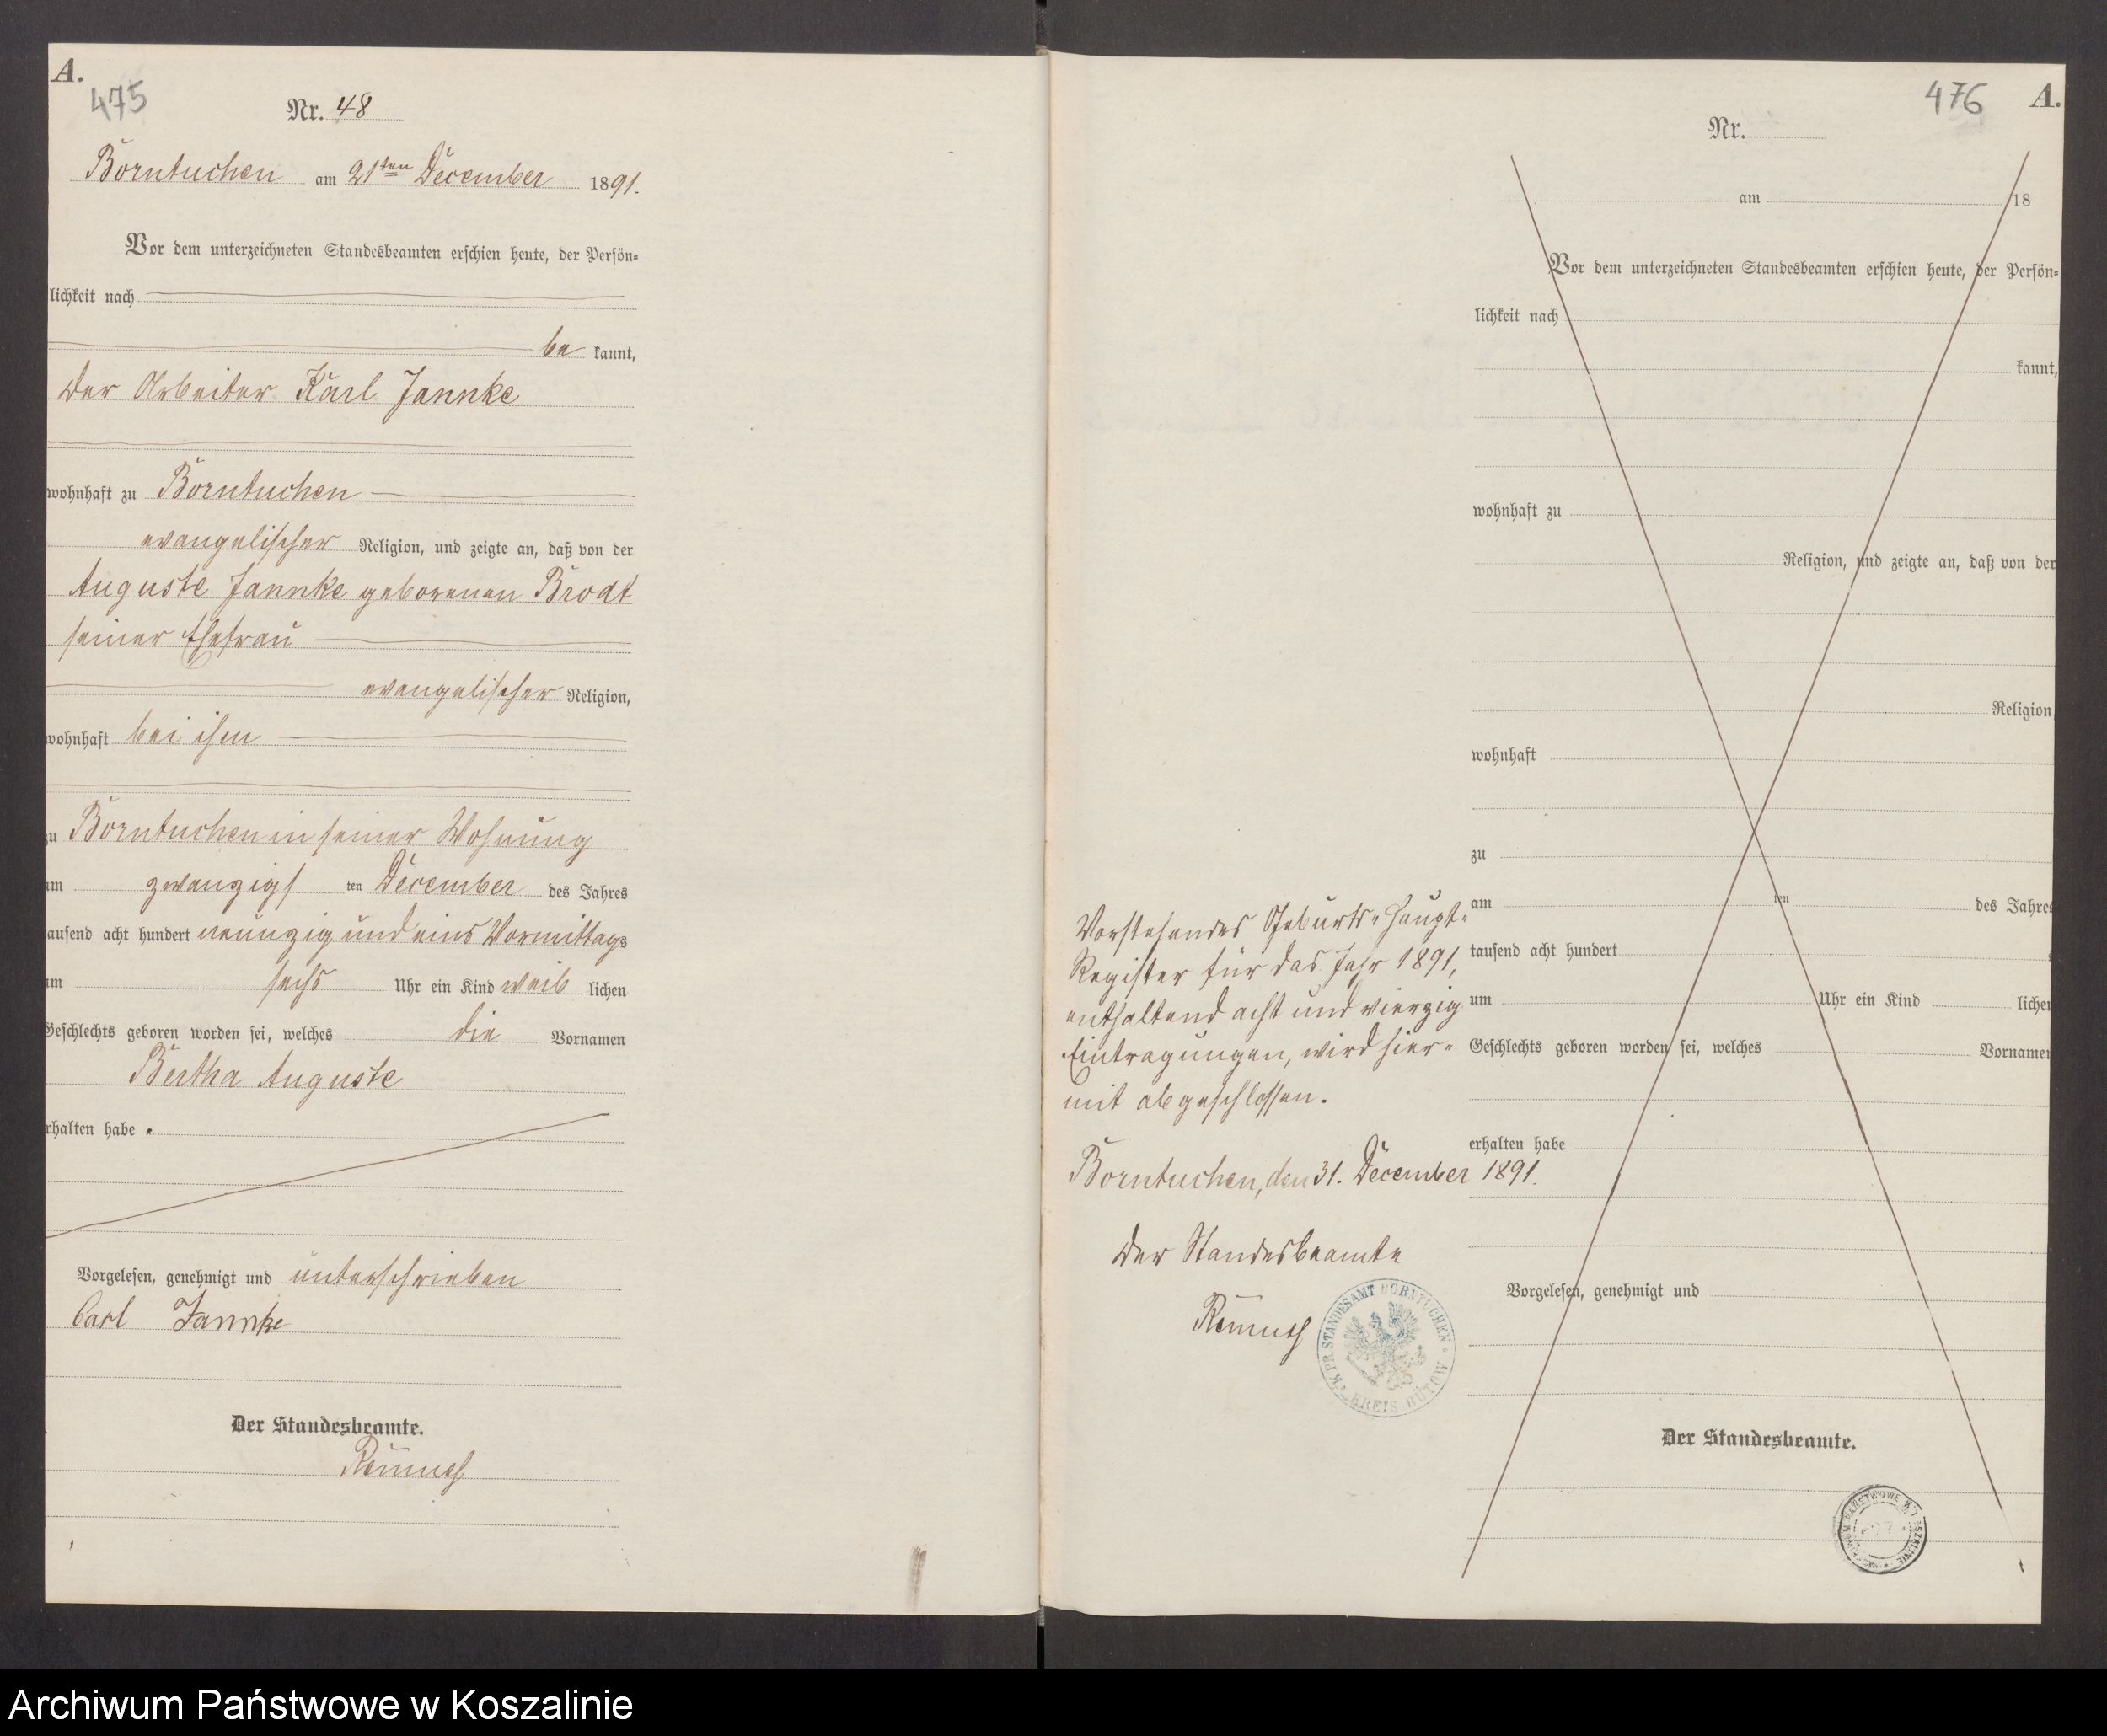 A.
475
Nr. 48
Borntuchen am 21ten December 1891.
Vor dem unterzeichneten Standesbeamten erschien heute, der Persön-
lichkeit nach
be kannt,
der Arbeiter Karl Jannke
wohnhaft zu Borntuchen
evangelischer Religion, und zeigte an, daß von der
Auguste Jannke geborenen Brodt
seiner Ehefrau
evangelischer Religion,
wohnhaft bei ihm
zu Borntuchen in seiner Wohnung
am zwanzigsten December des Jahres
tausend acht hundert neunzig und eins Vormittags
um sechs Uhr ein Kind weib lichen
Geschlechts geboren worden sei, welches die Vornamen
Bertha Auguste
erhalten habe.
Vorgelesen, genehmigt und unterschrieben
Carl Jannke
Der Standesbeamte.
476
A.
Nr.
am 18
Vor dem unterzeichneten Standesbeamten erschien heute, der Persön-
lichkeit nach
kannt,
wohnhaft zu
Religion, und zeigte an, daß von der
Religion
wohnhaft
zu
am ten des Jahres
tausend acht hundert
um Uhr ein Kind lichen
Geschlechts geboren worden sei, welches Vornamen
erhalten habe
Vorgelesen, genehmigt und
Der Standesbeamte.
Vorstehendes Geburts-Haupt-
Register für das Jahr 1891,
enthaltend acht und vierzig
Eintragungen, wird hier-
mit abgeschlossen.
Borntuchen, den 31. December 1891.
Der Standesbeamte
K. PR. STANDESAMT BORNTUCHEN
KREIS BÜTOW
Archiwum Państwowe w Koszalinie